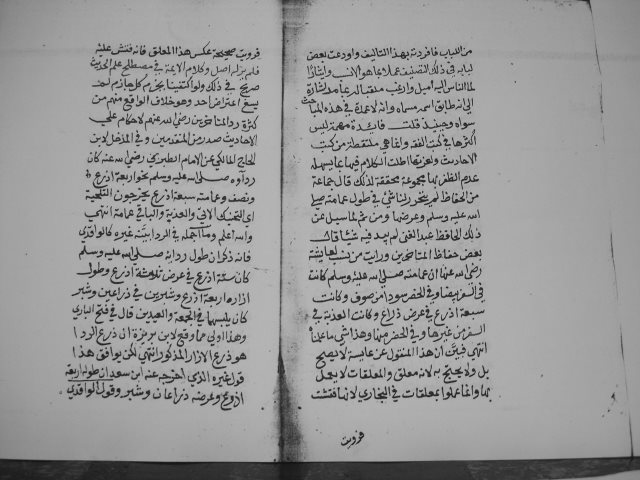 من اللباب فافردته بهذا التاليف واودعت بعض
لبابه فى ذلك التصنيف عملا بما هو الانسب وايثارا
لما الناس اليه اميل وارغب ملقبا له بما مد اشارة
الى انه طابق اسمه مسماه وانه لا عمدة فى هذه المباحث
سواه وحينئذ قلت فائدة مهمة ليس
اكثرها فى كتب الفقه وانما هى ملتقطة من كتب
الاحاديث ولعزتها اطلت الكلام فيها بما يسهله
عدم الظفر بها مجموعة محققة لذلك قال جماعة
من الحفاظ لم يتحرر لنا شئ فى طول عمامته صلى
الله عليه وسلم وعرضها ومن ثم لما سئل عن
ذلك الحافظ عبد الغنى لم يبد فيه شيئا قال
بعض حفاظ المتاخرين ورايت من نسب لعايشة
رضى الله عنها ان عمامته صلى الله عليه وسلم كانت
فى السفر بيضا وفى الحضر سودا من صوف وكانت
سبعة اذرع فى عرض ذراع وكانت العذبة فى
السفر من غيرها وفى الحضر منها وهذا شى ما علمناه
انتهى فبيّن ان هذا المنقول عن عايشة لا يصح
بل ولا يحتج به لانه معلق والمعلقات لا يعمل
بها وانما عملوا بمعلقات فى البخارى لانها فتشت
فرويت
فرويت صحيحة عكس هذا المعلق فانه فتش عليه
فلم ير له اصل وكلام الايمة فى مصطلح علم الحديث
صريح فى ذلك ولو اكتفينا بجزم كل جازم لم
يبق اعتراض احد وهو خلاف الواقع منهم من
كثرة رد المتاخرين رضى الله عنهم لاحكام على
الاحاديث صدر من المتقدمين وفى المدخل لابن
الحاج المالكى عن الامام الطبرى رضى الله عنه كان
رداوه صلى الله عليه وسلم نحو اربعة اذرع
ونصف وعمامته سبعة اذرع يخرجون التلحية
اى التحنيك الاتى والعذبة والباقى عمامة انتهى
والله اعلم وما اجمله فى الردا بيّنه غيره كالواقدى
فانه ذكر ان طول رداية صلى الله عليه وسلم
كان ستة اذرع فى عرض ثلاثة اذرع وطول
ازاره اربعة اذرع وشبرين فى ذراعين وشبر
كان يلبسهما فى الجمعة والعيدين قال فى فتح البارى
وهذا اولى مما وقع لابن بريزة ان ذرع الردا
هو ذرع الازار المذكور انتهى لكن يوافق هذا
قول غيره الذى اخرجه عنه ابن سعد ان طوله اربعة
اذرع وعرضه ذراعان وشبر وقول الواقدى